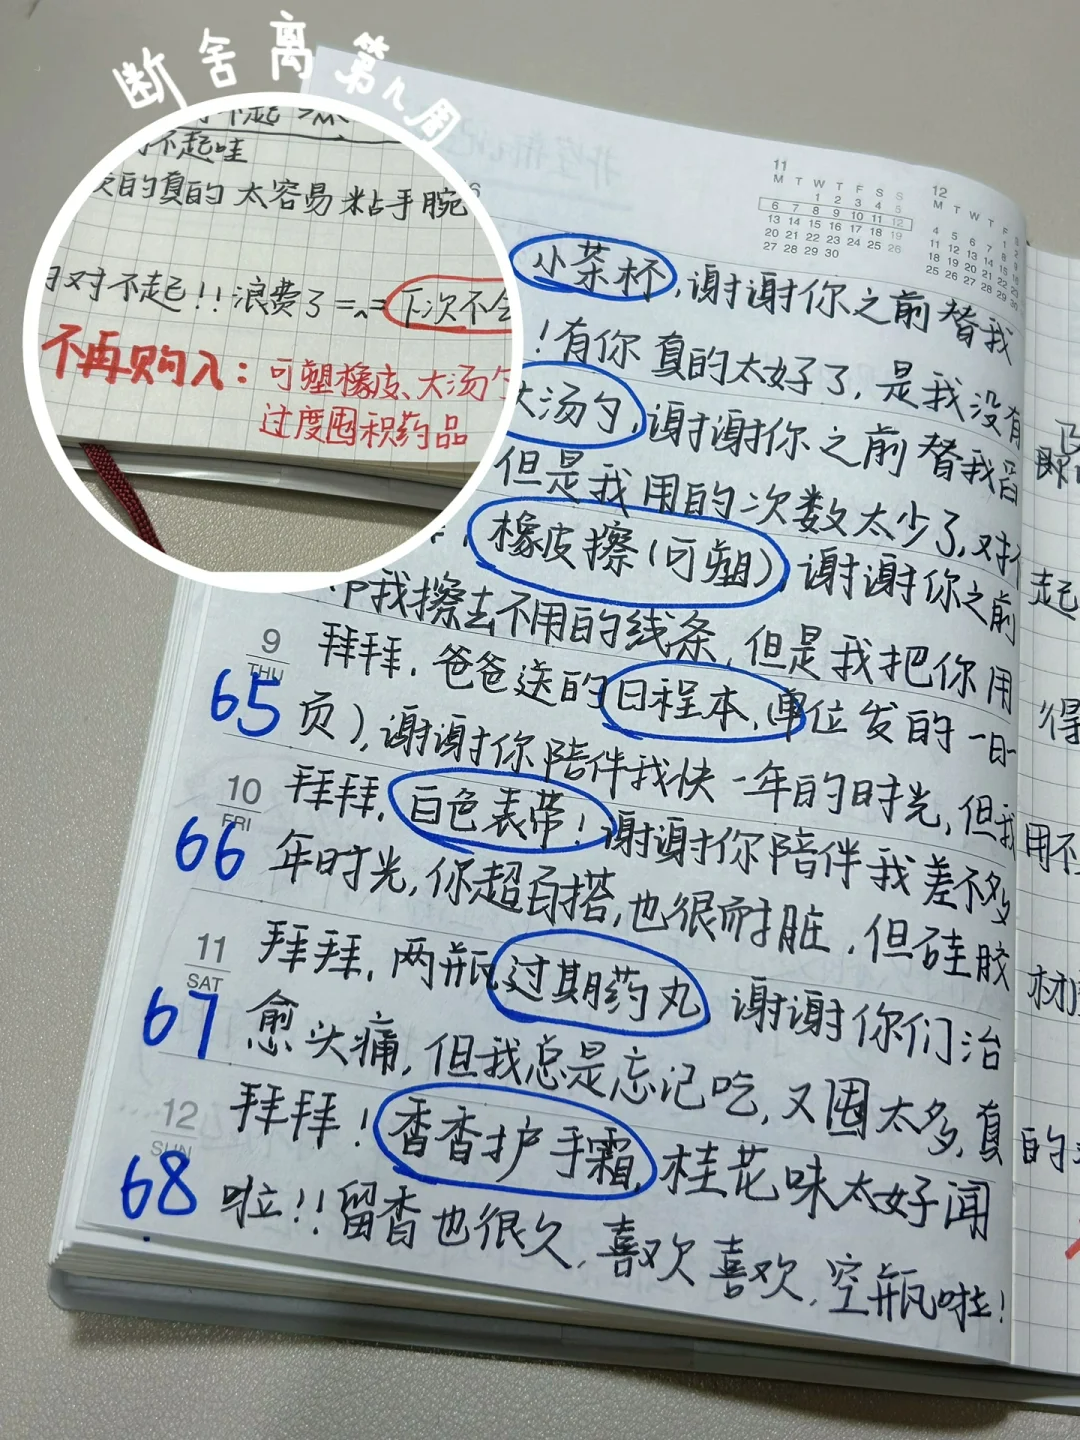 断舍离第九周
不起哇
的真的太容易粘手腕
对不起!!浪费了=^=下次不会
不再购入:可塑橡皮、大汤勺
过度囤积药品
11
M T W T F S S
1 2 3 4 5
6 7 8 9 10 11 12
13 14 15 16 17 18 19
20 21 22 23 24 25 26
27 28 29 30
12
M T W T F S
1 2
4 5 6 7 8 9
11 12 13 14 15 16
18 19 20 21 22 23
25 26 27 28 29 30
小茶杯,谢谢你之前替我
!有你真的太好了,是我没有
大汤勺,谢谢你之前替我舀
但是我用的次数太少了,对不
起
橡皮擦(可塑),谢谢你之前
帮我擦去不用的线条,但是我把你用
得
9
THU
65
拜拜,爸爸送的日程本,单位发的一日一
页),谢谢你陪伴我快一年的时光,但我用不
10
FRI
66
拜拜,白色表带!谢谢你陪伴我差不多
年时光,你超百搭,也很耐脏,但硅胶材
11
SAT
67
拜拜,两瓶过期药丸 谢谢你们治
愈头痛,但我总是忘记吃,又囤太多,真的
12
SUN
68
拜拜!香香护手霜,桂花味太好闻
啦!!留香也很久,喜欢喜欢,空瓶啦!